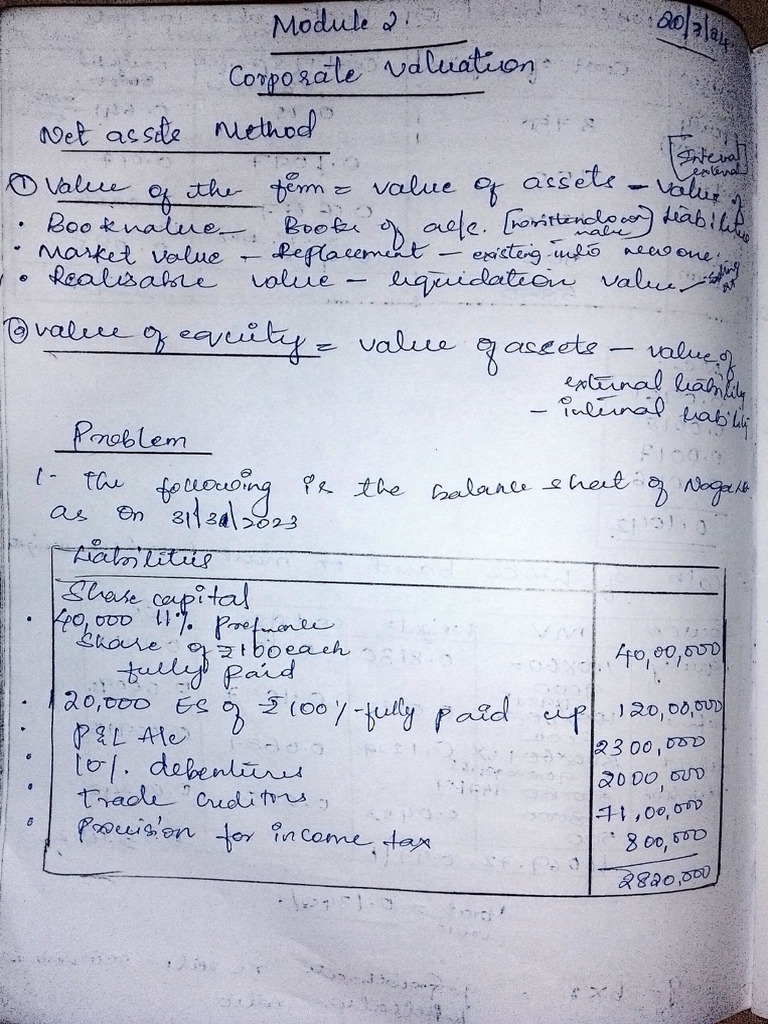 Module 2
20/7/24
Corporate valuation
Net assets Method
[Internal
external]
① Value of the firm = value of assets - value of
• Book value - Books of a/c. [written down value] Liabilities
• Market value - Replacement - existing into new one.
• Realisable value - liquidation value -
② Value of equity = value of assets - value of
external liability
- internal liability
Problem
1- The following is the balance sheet of
as on 31/3/2023
Liabilities
Share capital
• 40,000 11% Preference
Share of ₹100 each
fully paid 40,00,000
• 20,000 ES of ₹100/- fully paid up 120,00,000
• P&L A/c 2300,000
• 10%. debentures 2000,000
• Trade creditors 71,00,000
• Provision for income tax 800,000
2820,000